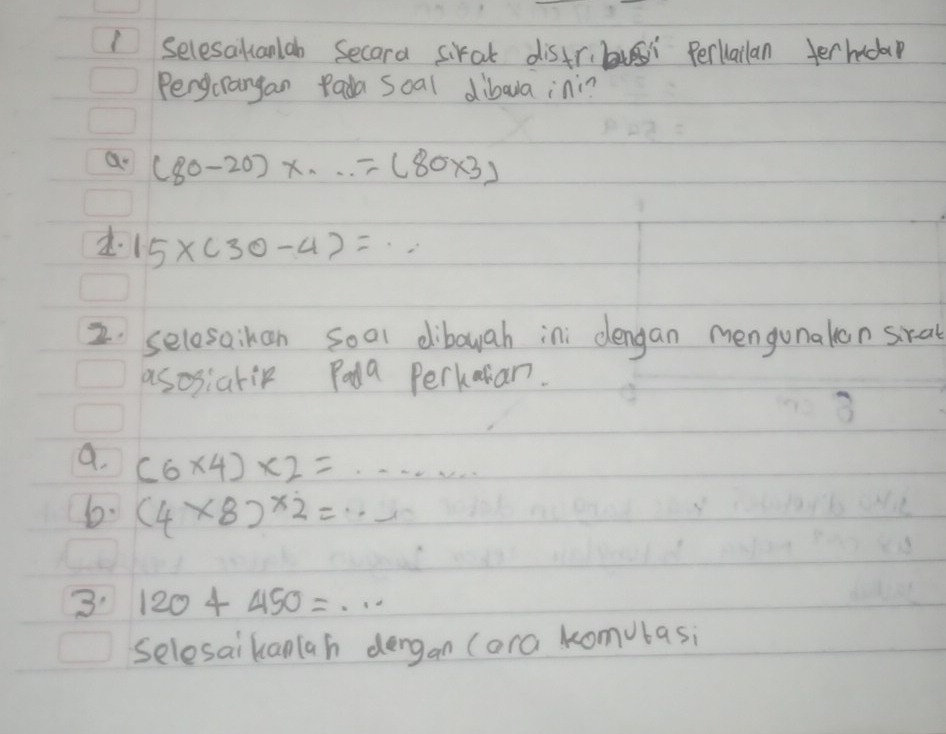 1 Selesaikanlah secara sifat distribusi Perkalian terhadap
Pengurangan Pada Soal dibawa ini?
a. (80-20) x. .. = (80x3)
2. 15x(30-4) = ...
2. selesaikan soal dibawah ini dengan mengunakan sifat
asosiatif Pada Perkalian.
a. (6x4) x2 = ........
b. (4x8) x2 = ...
3. 120 + 450 = ...
Selesaikanlah dengan Cara komutasi
8 cm